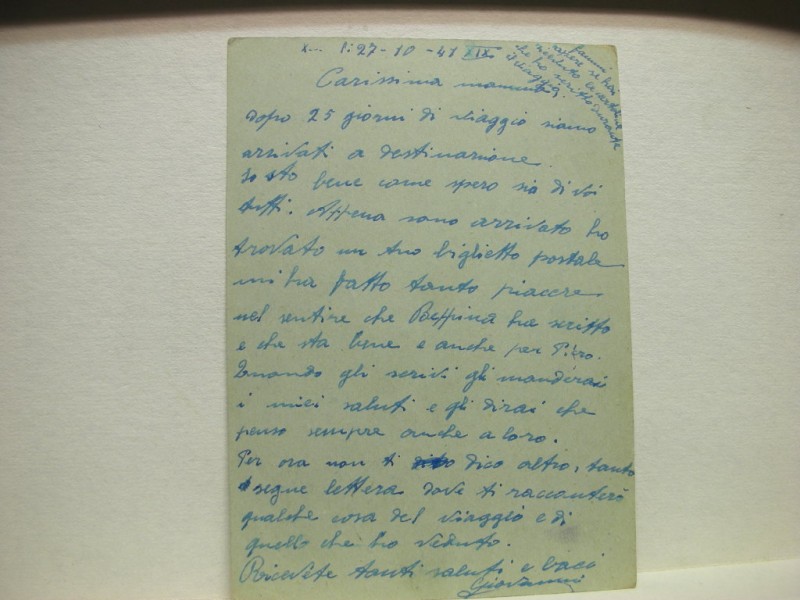 x... li 27-10-41 XIX
fammi
sapere se hai
ricevuto la cartolina
che ho scritto durante
il viaggio.
Carissima mamma
dopo 25 giorni di viaggio siamo
arrivati a destinazione.
Io sto bene come spero sia di voi
tutti. Appena sono arrivato ho
trovato un tuo biglietto postale
mi ha fatto tanto piacere
nel sentire che Peppina ha scritto
e che sta bene e anche per Piero.
Quando gli scrivi gli manderai
i miei saluti e gli dirai che
penso sempre anche a loro.
Per ora non ti dico altro, tanto
segue lettera dove ti racconterò
qualche cosa del viaggio e di
quello che ho veduto.
Ricevete tanti saluti e baci
Giovanni